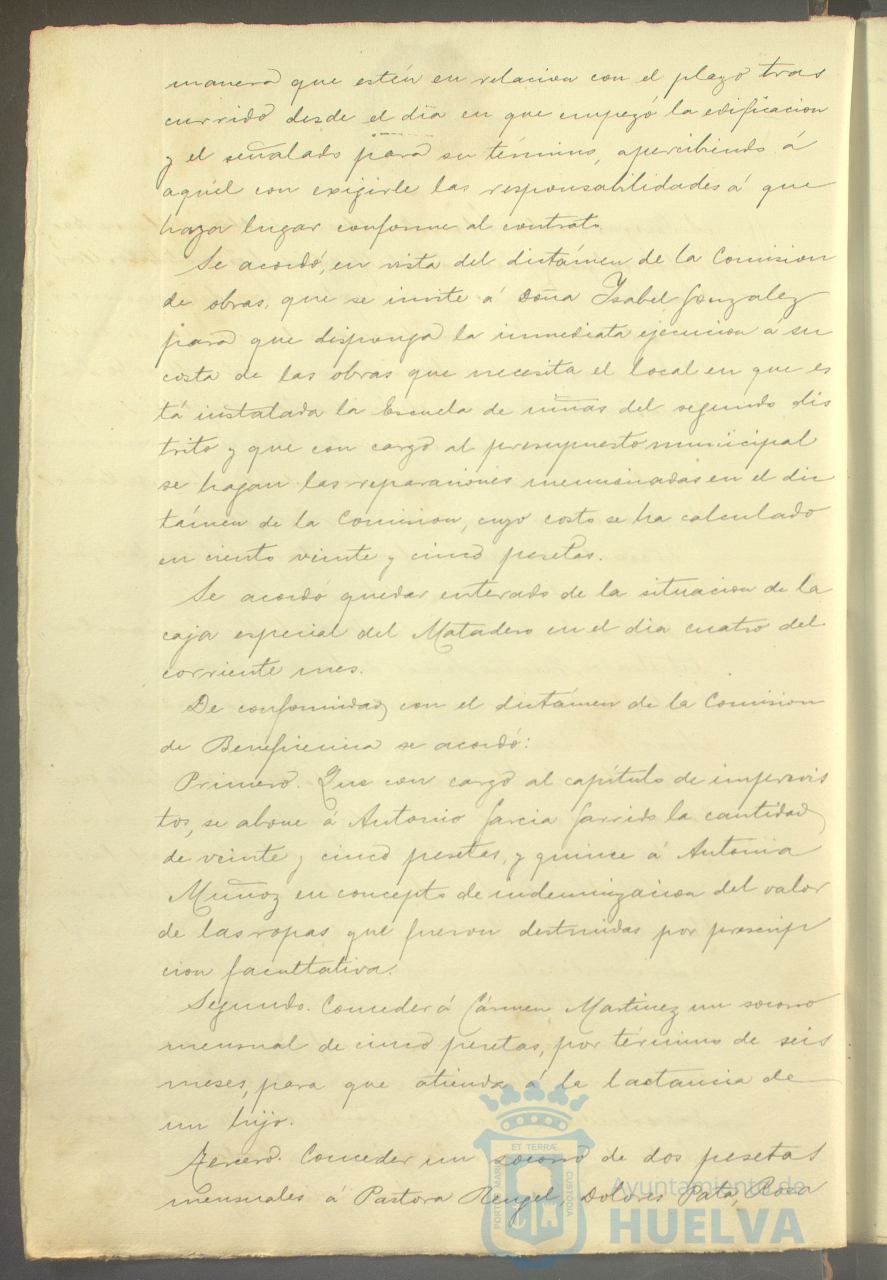 manera que estén en relacion con el plazo tras
currido desde el dia en que empezó la edificacion
y el señalado para su término, apercibiendo á
aquél con exigirle las responsabilidades á que
haya lugar conforme al contrato.
Se acordó, en vista del dictámen de la Comision
de obras, que se invite á Doña Ysabel Gonzalez
para que disponga la inmediata ejecucion á su
costa de las obras que necesita el local en que es
tá instalada la Escuela de niñas del segundo dis
trito y que con cargo al presupuesto municipal
se hagan las reparaciones mencionadas en el dic
támen de la Comision, cuyo costo se ha calculado
en ciento veinte y cinco pesetas.
Se acordó quedar enterado de la situacion de la
caja especial del Matadero en el dia cuatro del
corriente mes.
De conformidad con el dictámen de la Comision
de Beneficencia se acordó:
Primero. Que con cargo al capítulo de imprevis
tos, se abone á Antonio Garcia Garrido la cantidad
de veinte y cinco pesetas, y quince á Antonia
Muñoz en concepto de indemnizacion del valor
de las ropas que fueron destruidas por prescrip
cion facultativa.
Segundo. Conceder á Cármen Martinez un socorro
mensual de cinco pesetas, por término de seis
meses, para que atienda á la lactancia de
un hijo.
Tercero. Conceder un socorro de dos pesetas
mensuales á Pastora Rengel, Dolores Pata, Rosa
PORTUS MARIS ET TERRÆ CUSTODIA
Ayuntamiento de
HUELVA